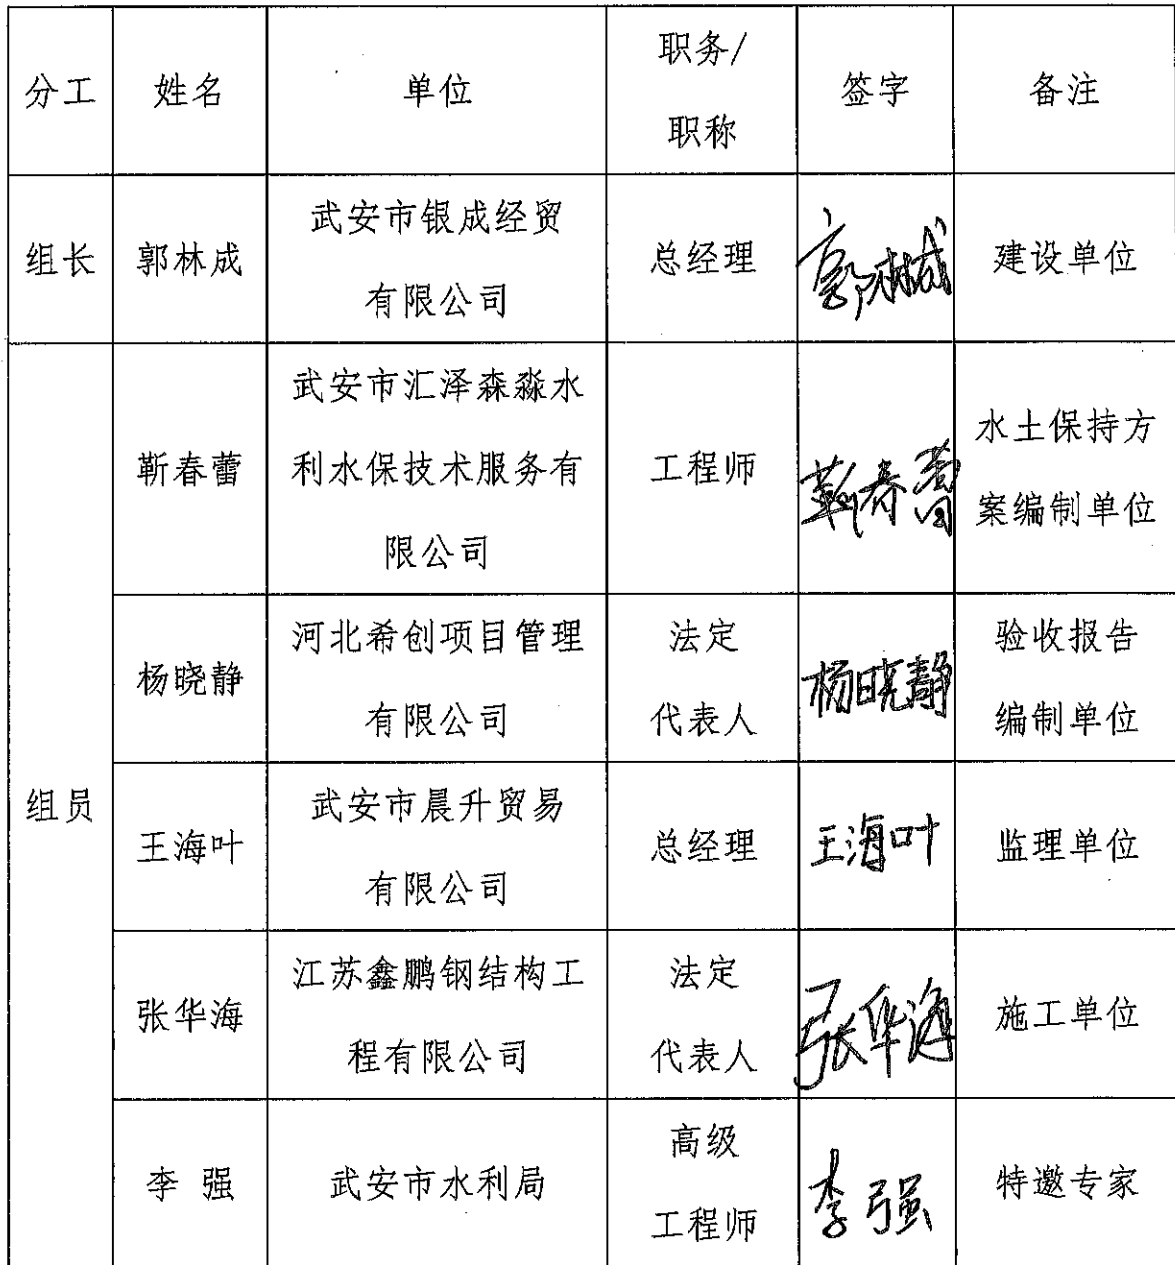 分工 姓名 单位 职务/
职称 签字 备注
组长 郭林成 武安市银成经贸
有限公司 总经理 郭林成 建设单位
组员
靳春蕾 武安市汇泽森淼水
利水保技术服务有
限公司 工程师 靳春蕾 水土保持方
案编制单位
杨晓静 河北希创项目管理
有限公司 法定
代表人 杨晓静 验收报告
编制单位
王海叶 武安市晨升贸易
有限公司 总经理 王海叶 监理单位
张华海 江苏鑫鹏钢结构工
程有限公司 法定
代表人 张华海 施工单位
李 强 武安市水利局 高级
工程师 李强 特邀专家